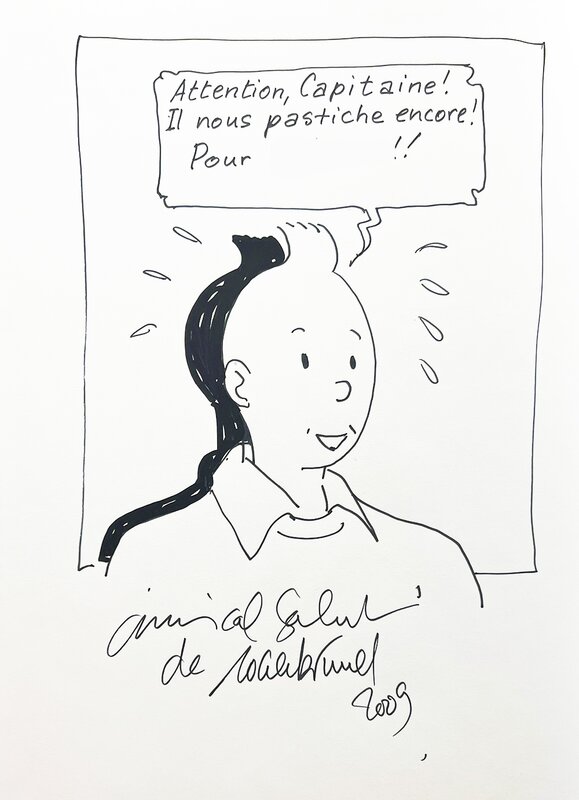 Attention, Capitaine!
Il nous pastiche encore!
Pour !!
amical Salut
de Roger Brunel
2009